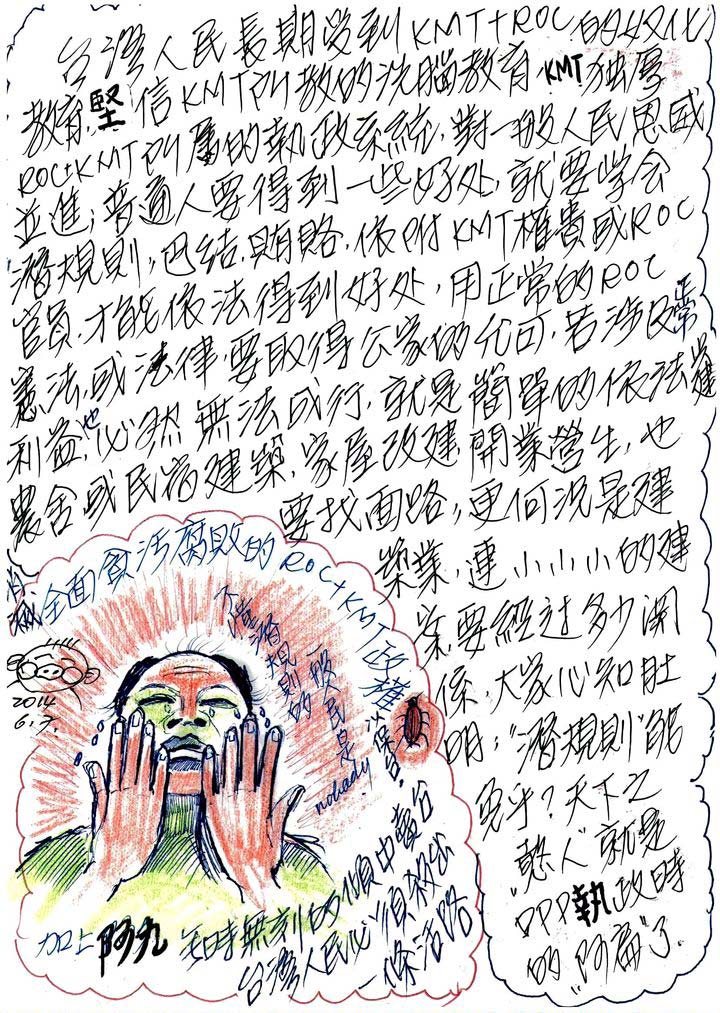 台灣人民長期受到KMT+ROC的奴化
教育,堅信KMT所教的洗腦教育KMT独厚
ROC+KMT所屬的執政系統,對一般人民恩威
並進,普通人要得到一些好处,就要学会
潛規則,巴结,賄賂,依附KMT權貴或ROC
官員,才能依法得到好处,用正常的ROC
憲法或法律,要取得公家的允可,若涉及
利益,也必然無法成行,就是簡單的依法
農舍或民宿建築,家屋改建,開業營生,也
要找面路,更何況是建
築業,連小小小的建
案要經过多少関
係,大家心知肚
明,"潛規則"能
免乎?天下之
"憨人"就是
DPP執政時
的"阿扁"了.
全面貪污腐敗的ROC+KMT政權
潛規則的
一般人民是
nobady
2014
6.7.
加上阿九無時無刻的傾中賣台
台灣人民必須殺出
一條活路